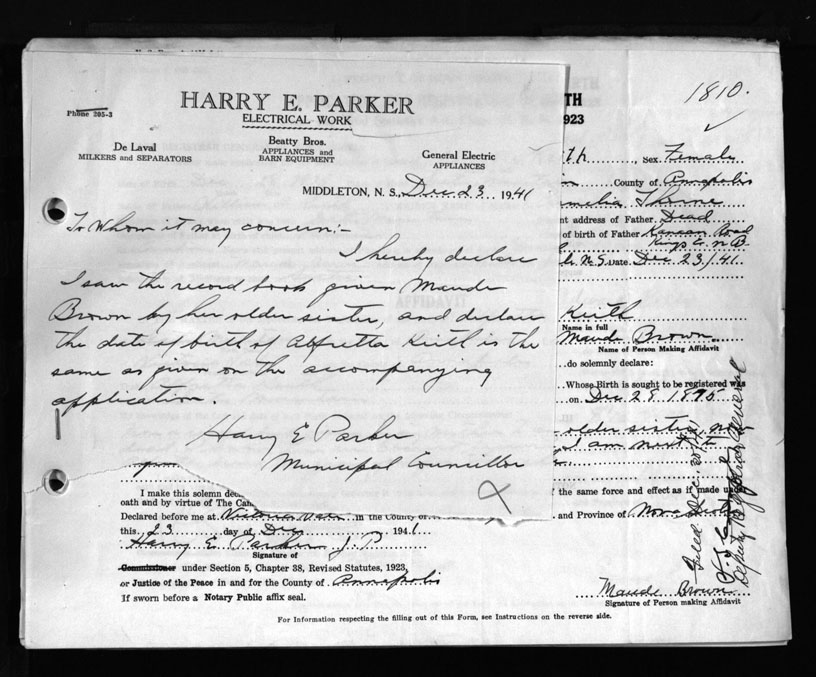 HARRY E. PARKER
ELECTRICAL WORK
Phone 205-3
De Laval
MILKERS and SEPARATORS
Beatty Bros.
APPLIANCES and
BARN EQUIPMENT
General Electric
APPLIANCES
MIDDLETON, N. S., Dec 23 1941
To Whom it may concern:-
I hereby declare
I saw the record book given Maude
Brown by her older sister, and declare
the date of birth of Alfretta Keith is the
same as given on the accompanying
application.
Harry E Parker
Municipal Councillor
TH
1923
1810.
th, Sex Female
County of Annapolis
nt address of Father Dead
of birth of Father
Kings Co. N B
N.S. Date Dec 23/41
Keith
Name in full
Maude Brown
Name of Person Making Affidavit
do solemnly declare:
Whose Birth is sought to be registered was
on Dec 28 1895
older sister, now
I am next to
I make this solemn dec
f the same force and effect as if made under
oath and by virtue of The Can
Declared before me at in the County of
and Province of Nova Scotia
this 23 day of Dec 1941
Harry E. Parker J. P.
Signature of
Commissioner under Section 5, Chapter 38, Revised Statutes, 1923,
or Justice of the Peace in and for the County of Annapolis
If sworn before a Notary Public affix seal.
Maude Brown
Signature of Person making Affidavit
Filed Dec 30/41
Deputy Registrar General
For Information respecting the filling out of this Form, see Instructions on the reverse side.